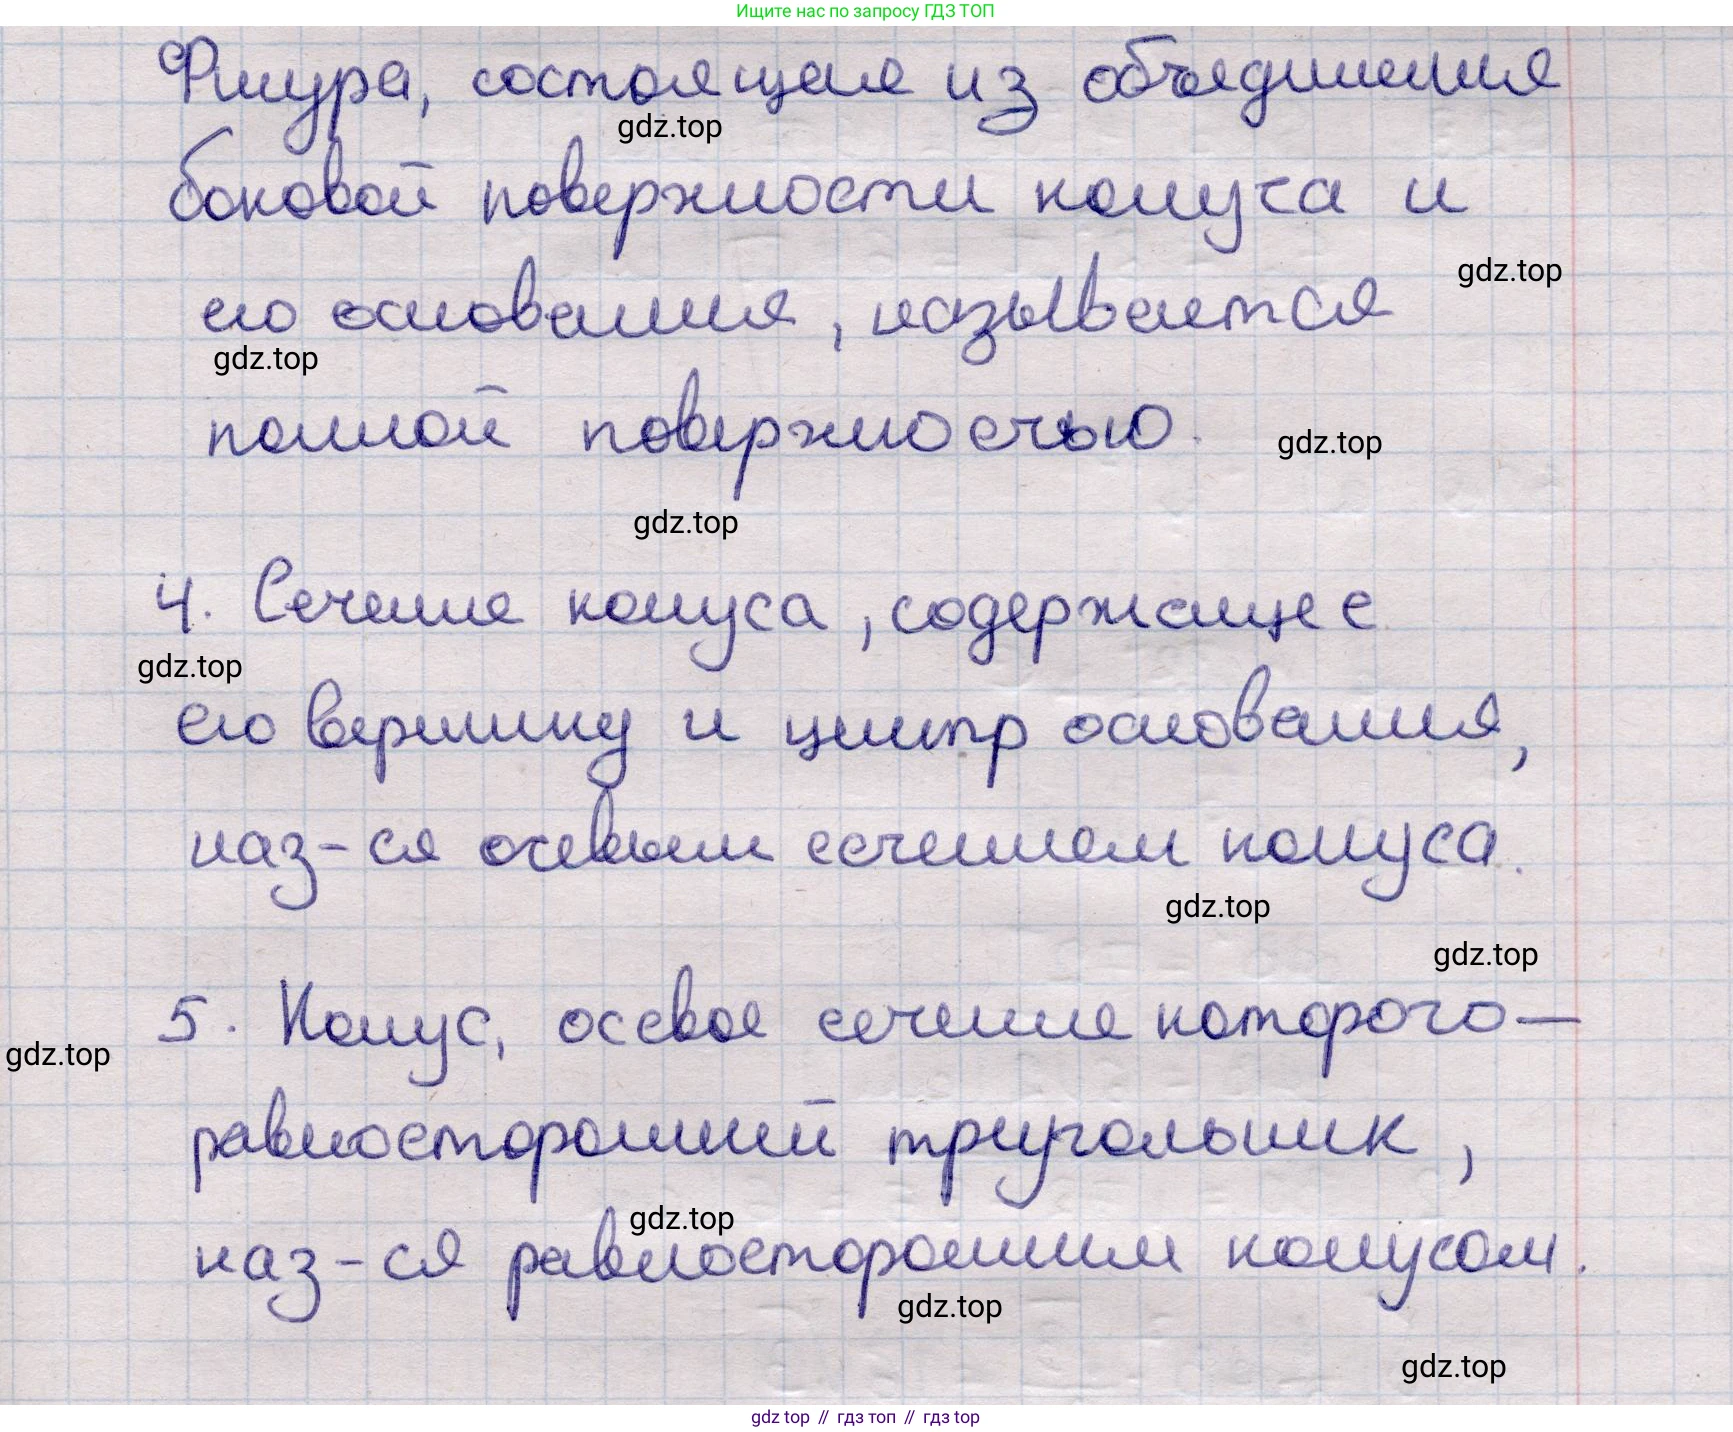 Ищите нас по запросу ГДЗ ТОП
Фигура, состоящая из объединения
gdz.top
боковой поверхности конуса и
gdz.top
его основания, называется
gdz.top
полной поверхностью.
gdz.top
gdz.top
4. Сечение конуса, содержащее
gdz.top
его вершину и центр основания,
наз-ся осевым сечением конуса.
gdz.top
gdz.top
5. Конус, осевое сечение которого —
gdz.top
равносторонний треугольник,
gdz.top
наз-ся равносторонним конусом.
gdz.top
gdz.top
gdz top // гдз топ // гдз top